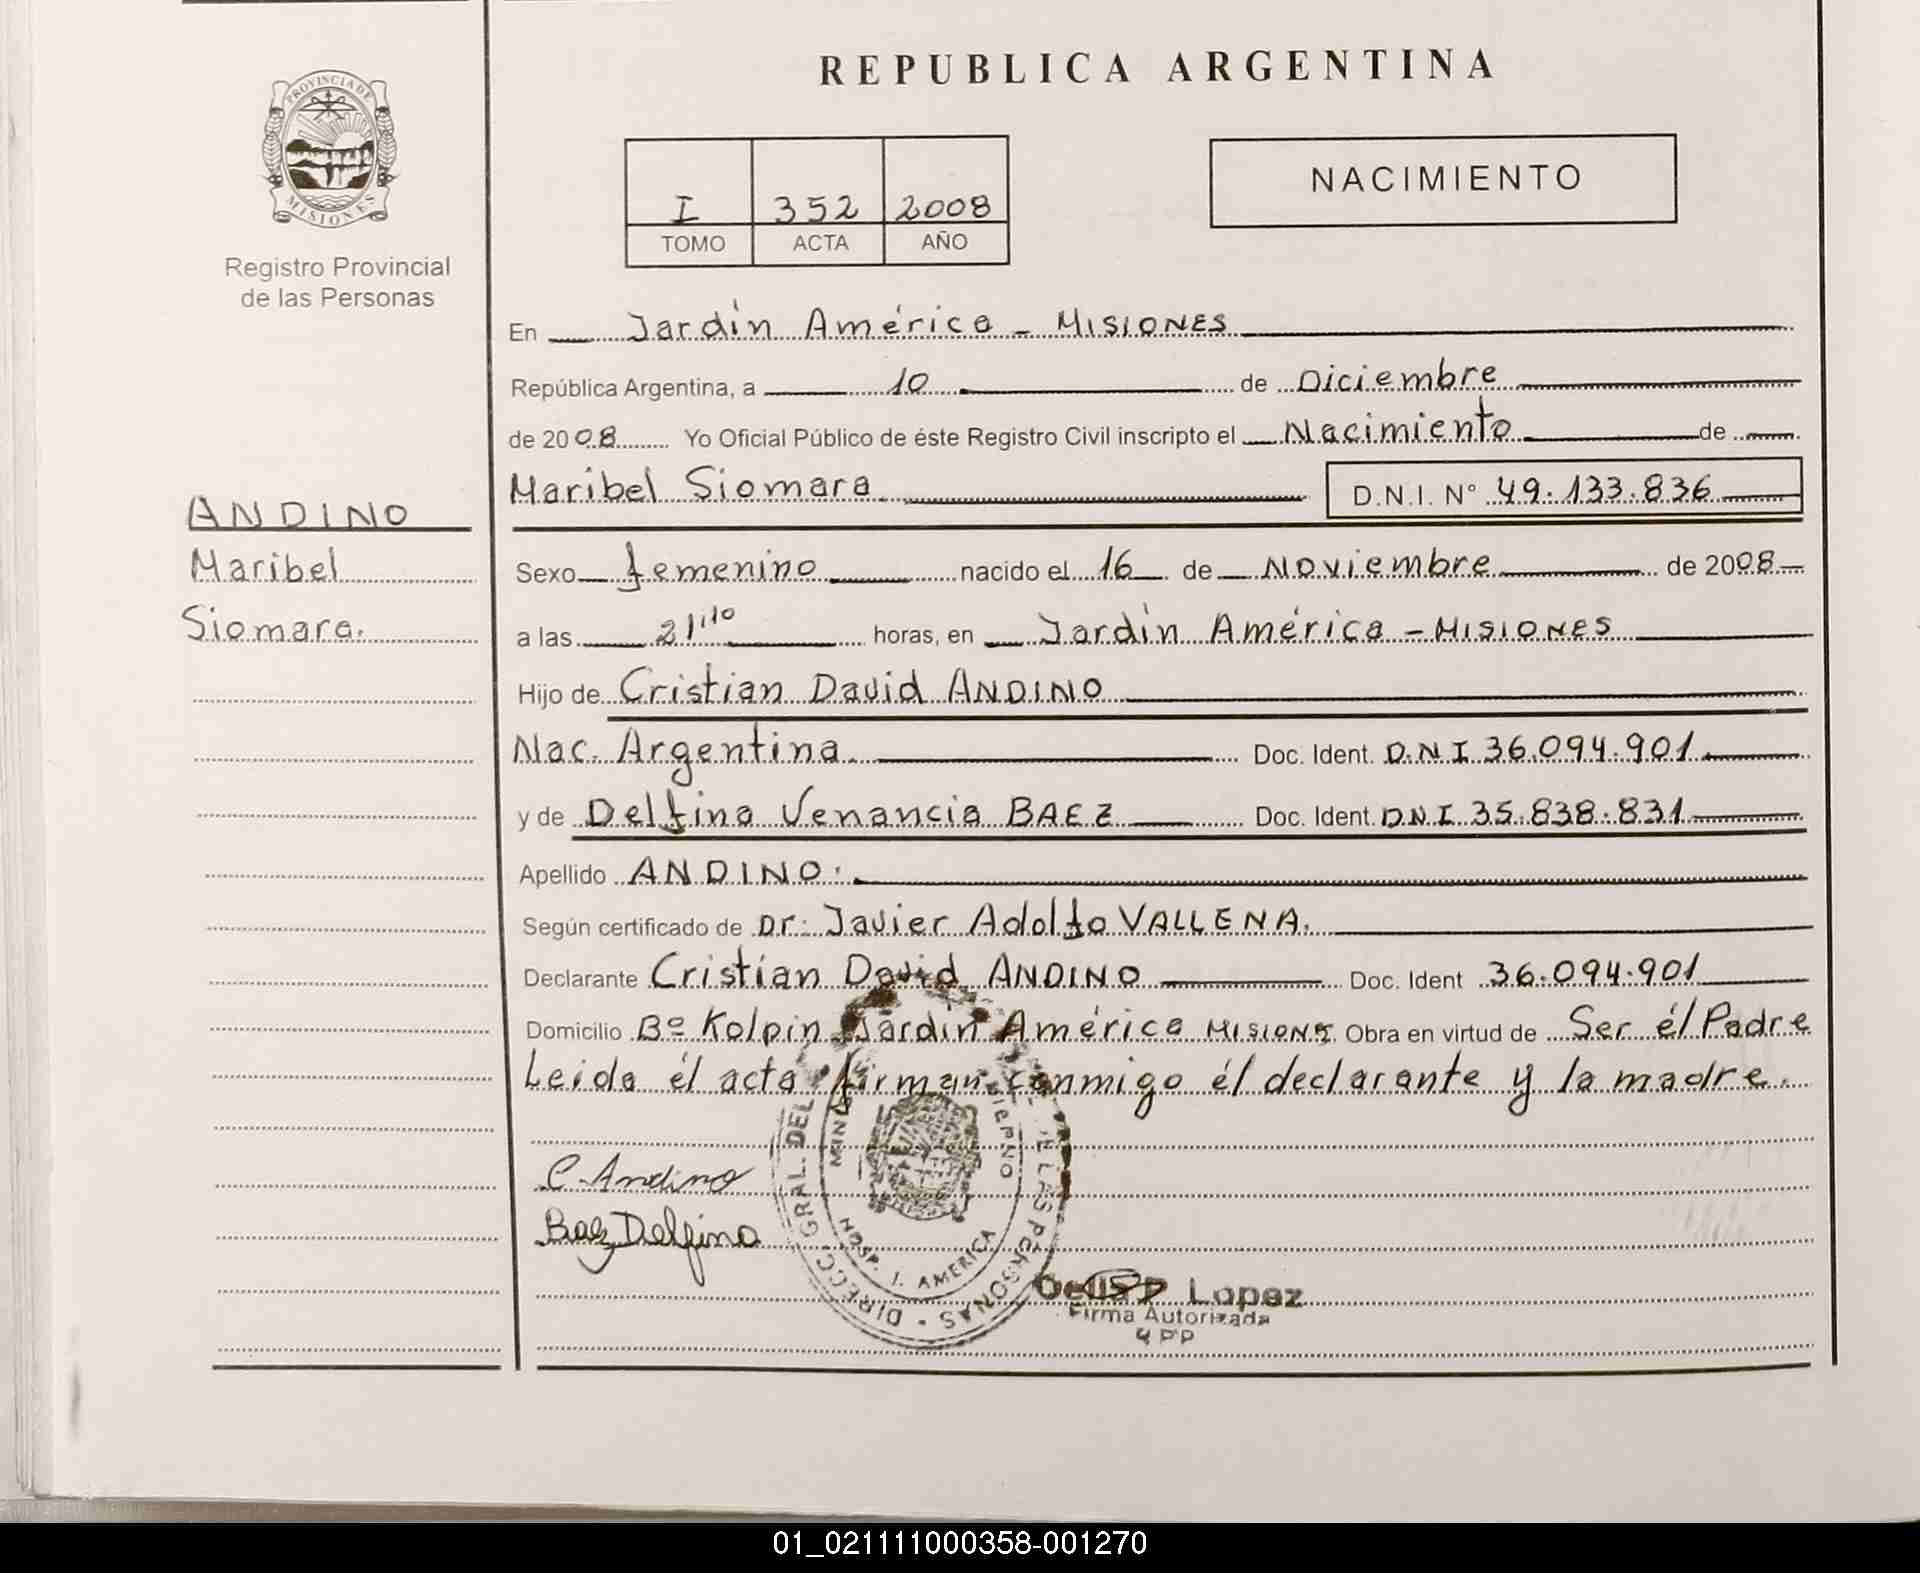 REPUBLICA ARGENTINA
PROVINCIA DE MISIONES
Registro Provincial
de las Personas
I 352 2008
TOMO ACTA AÑO
NACIMIENTO
En Jardín América - MISIONES
República Argentina, a 10 de Diciembre
de 2008 Yo Oficial Público de éste Registro Civil inscripto el Nacimiento de
Maribel Siomara D.N.I. N° 49.133.836
ANDINO
Maribel
Siomara.
Sexo femenino nacido el 16 de Noviembre de 2008
a las 21:10 horas, en Jardín América - MISIONES
Hijo de Cristian David ANDINO
Nac. Argentina Doc. Ident. D.N.I 36.094.901
y de Delfina Venancia BAEZ Doc. Ident. D.N.I 35.838.831
Apellido ANDINO.
Según certificado de Dr. Javier Adolfo VALLENA.
Declarante Cristian David ANDINO Doc. Ident 36.094.901
Domicilio Bº Kolpin Jardín América Obra en virtud de Ser él Padre
Leida él acta firman conmigo él declarante y la madre.
C. Andino
Baez Delfina
DIRECC. GRAL. DEL LAS PERSONAS
HOSP. J. AMERICA
Lopez
Firma Autorizada
01_021111000358-001270